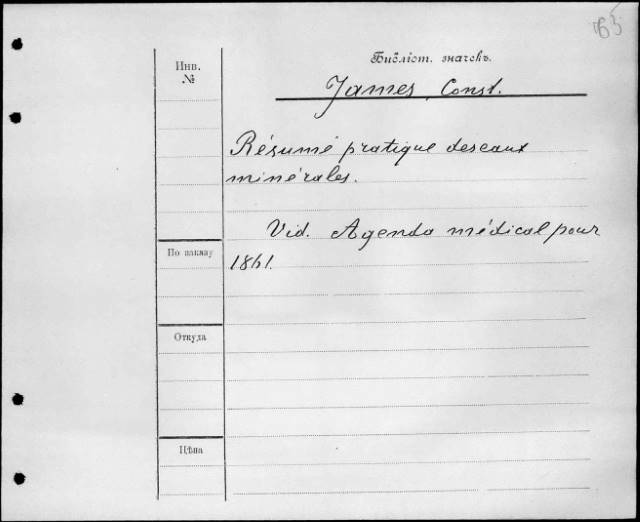 65
Инв.
№
Библіот. значекъ.
James, Const.
Résumé pratique des eaux
minérales.
Vid. Agenda médical pour
1861.
По заказу
Откуда
Цѣна